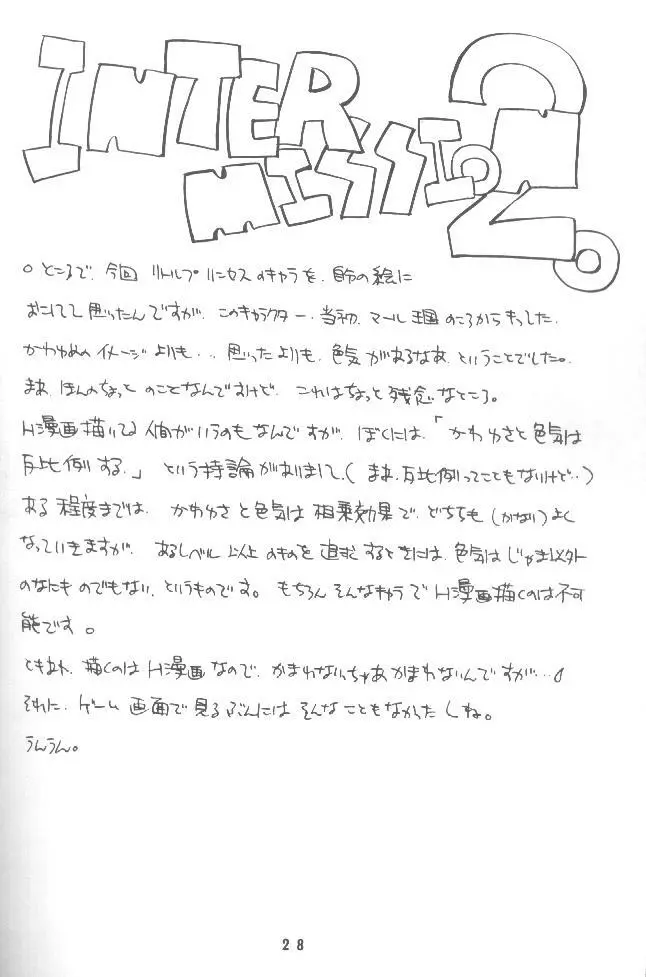 INTER
MISSION 2.
○ところで、今回 リトルプリンセスのキャラを、自分の絵に
おこしてて思ったんですが、このキャラクター、当初、マール王国のころからもってた、
かわゆめのイメージよりも、、思ったよりも、色気があるなあ、ということでした。
まあ、ほんのちょっとのことなんですけど、これはちょっと残念なところ。
H漫画描いてる人間がいうのもなんですが、ぼくには、「かわゆさと色気は
反比例する。」という持論がありまして、(まあ、反比例ってこともないけど…)
ある程度までは、かわゆさと色気は相乗効果で、どちらも(かなり)よく
なっていきますが、あるレベル以上のものを追求するときには、色気はじゃま以外
のなにものでもない、というものです。もちろんそんなキャラでH漫画描くのは不可
能です。
ともあれ、描くのはH漫画なので、かまわないっちゃあかまわないんですが…
それに、ゲーム画面で見るぶんにはそんなこともなかったしね。
うんうん。
28